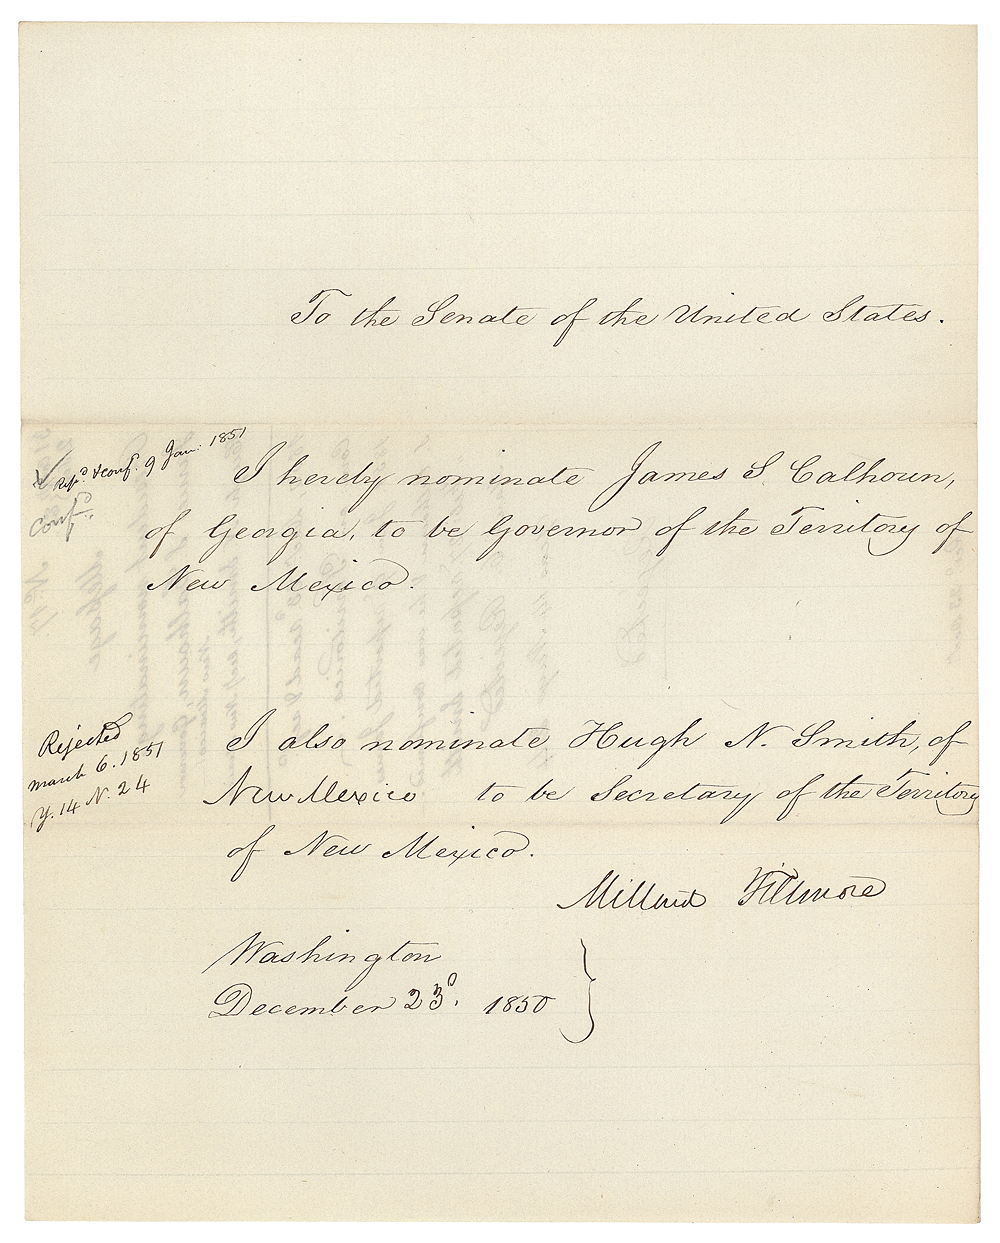 To the Senate of the United States.
Rep.d & conf. 9 Jan: 1851
Conf.d
I hereby nominate James S. Calhoun,
of Georgia, to be Governor of the Territory of
New Mexico.
Rejected
March 6. 1851
Y. 14 N. 24
I also nominate Hugh N. Smith, of
New Mexico to be Secretary of the Territory
of New Mexico.
Millard Fillmore
Washington
December 23d. 1850